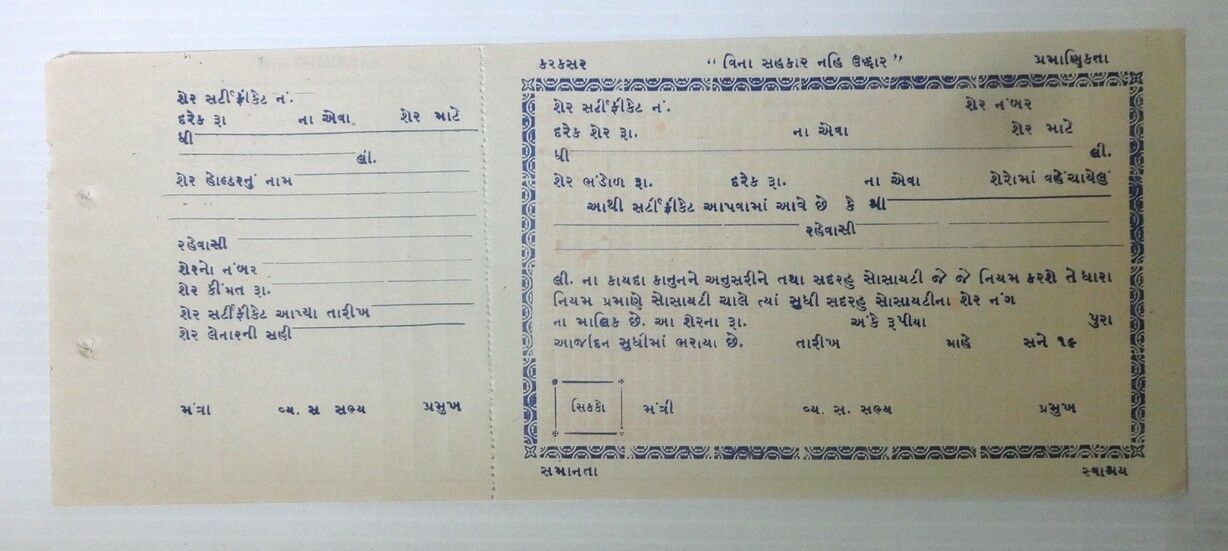 શેર સર્ટીફીકેટ નં.
દરેક રૂા ના એવા શેર માટે
ધી
લી.
શેર હોલ્ડરનું નામ
રહેવાસી
શેરનો નંબર
શેર કીંમત રૂા.
શેર સર્ટીફીકેટ આપ્યા તારીખ
શેર લેનારની સહી
મંત્રી વ્ય. સ સભ્ય પ્રમુખ
કરકસર "વિના સહકાર નહિ ઉદ્ધાર" પ્રમાણિકતા
શેર સર્ટીફીકેટ નં. શેર નંબર
દરેક શેર રૂા. ના એવા શેર માટે
ધી લી.
શેર ભંડોળ રૂા. દરેક રૂા. ના એવા શેરોમાં વહેંચાયેલું
આથી સર્ટીફીકેટ આપવામાં આવે છે કે શ્રી
રહેવાસી
લી. ના કાયદા કાનુનને અનુસરીને તથા સદરહુ સોસાયટી જે જે નિયમ કરશે તે ધારા
નિયમ પ્રમાણે સોસાયટી ચાલે ત્યાં સુધી સદરહુ સોસાયટીના શેર નંગ
ના માલિક છે. આ શેરના રૂા. અંકે રૂપીયા પુરા
આજદિન સુધીમાં ભરાયા છે. તારીખ માહે સને ૧૯
સિક્કો મંત્રી વ્ય. સ. સભ્ય પ્રમુખ
સમાનતા સ્વાશ્રય